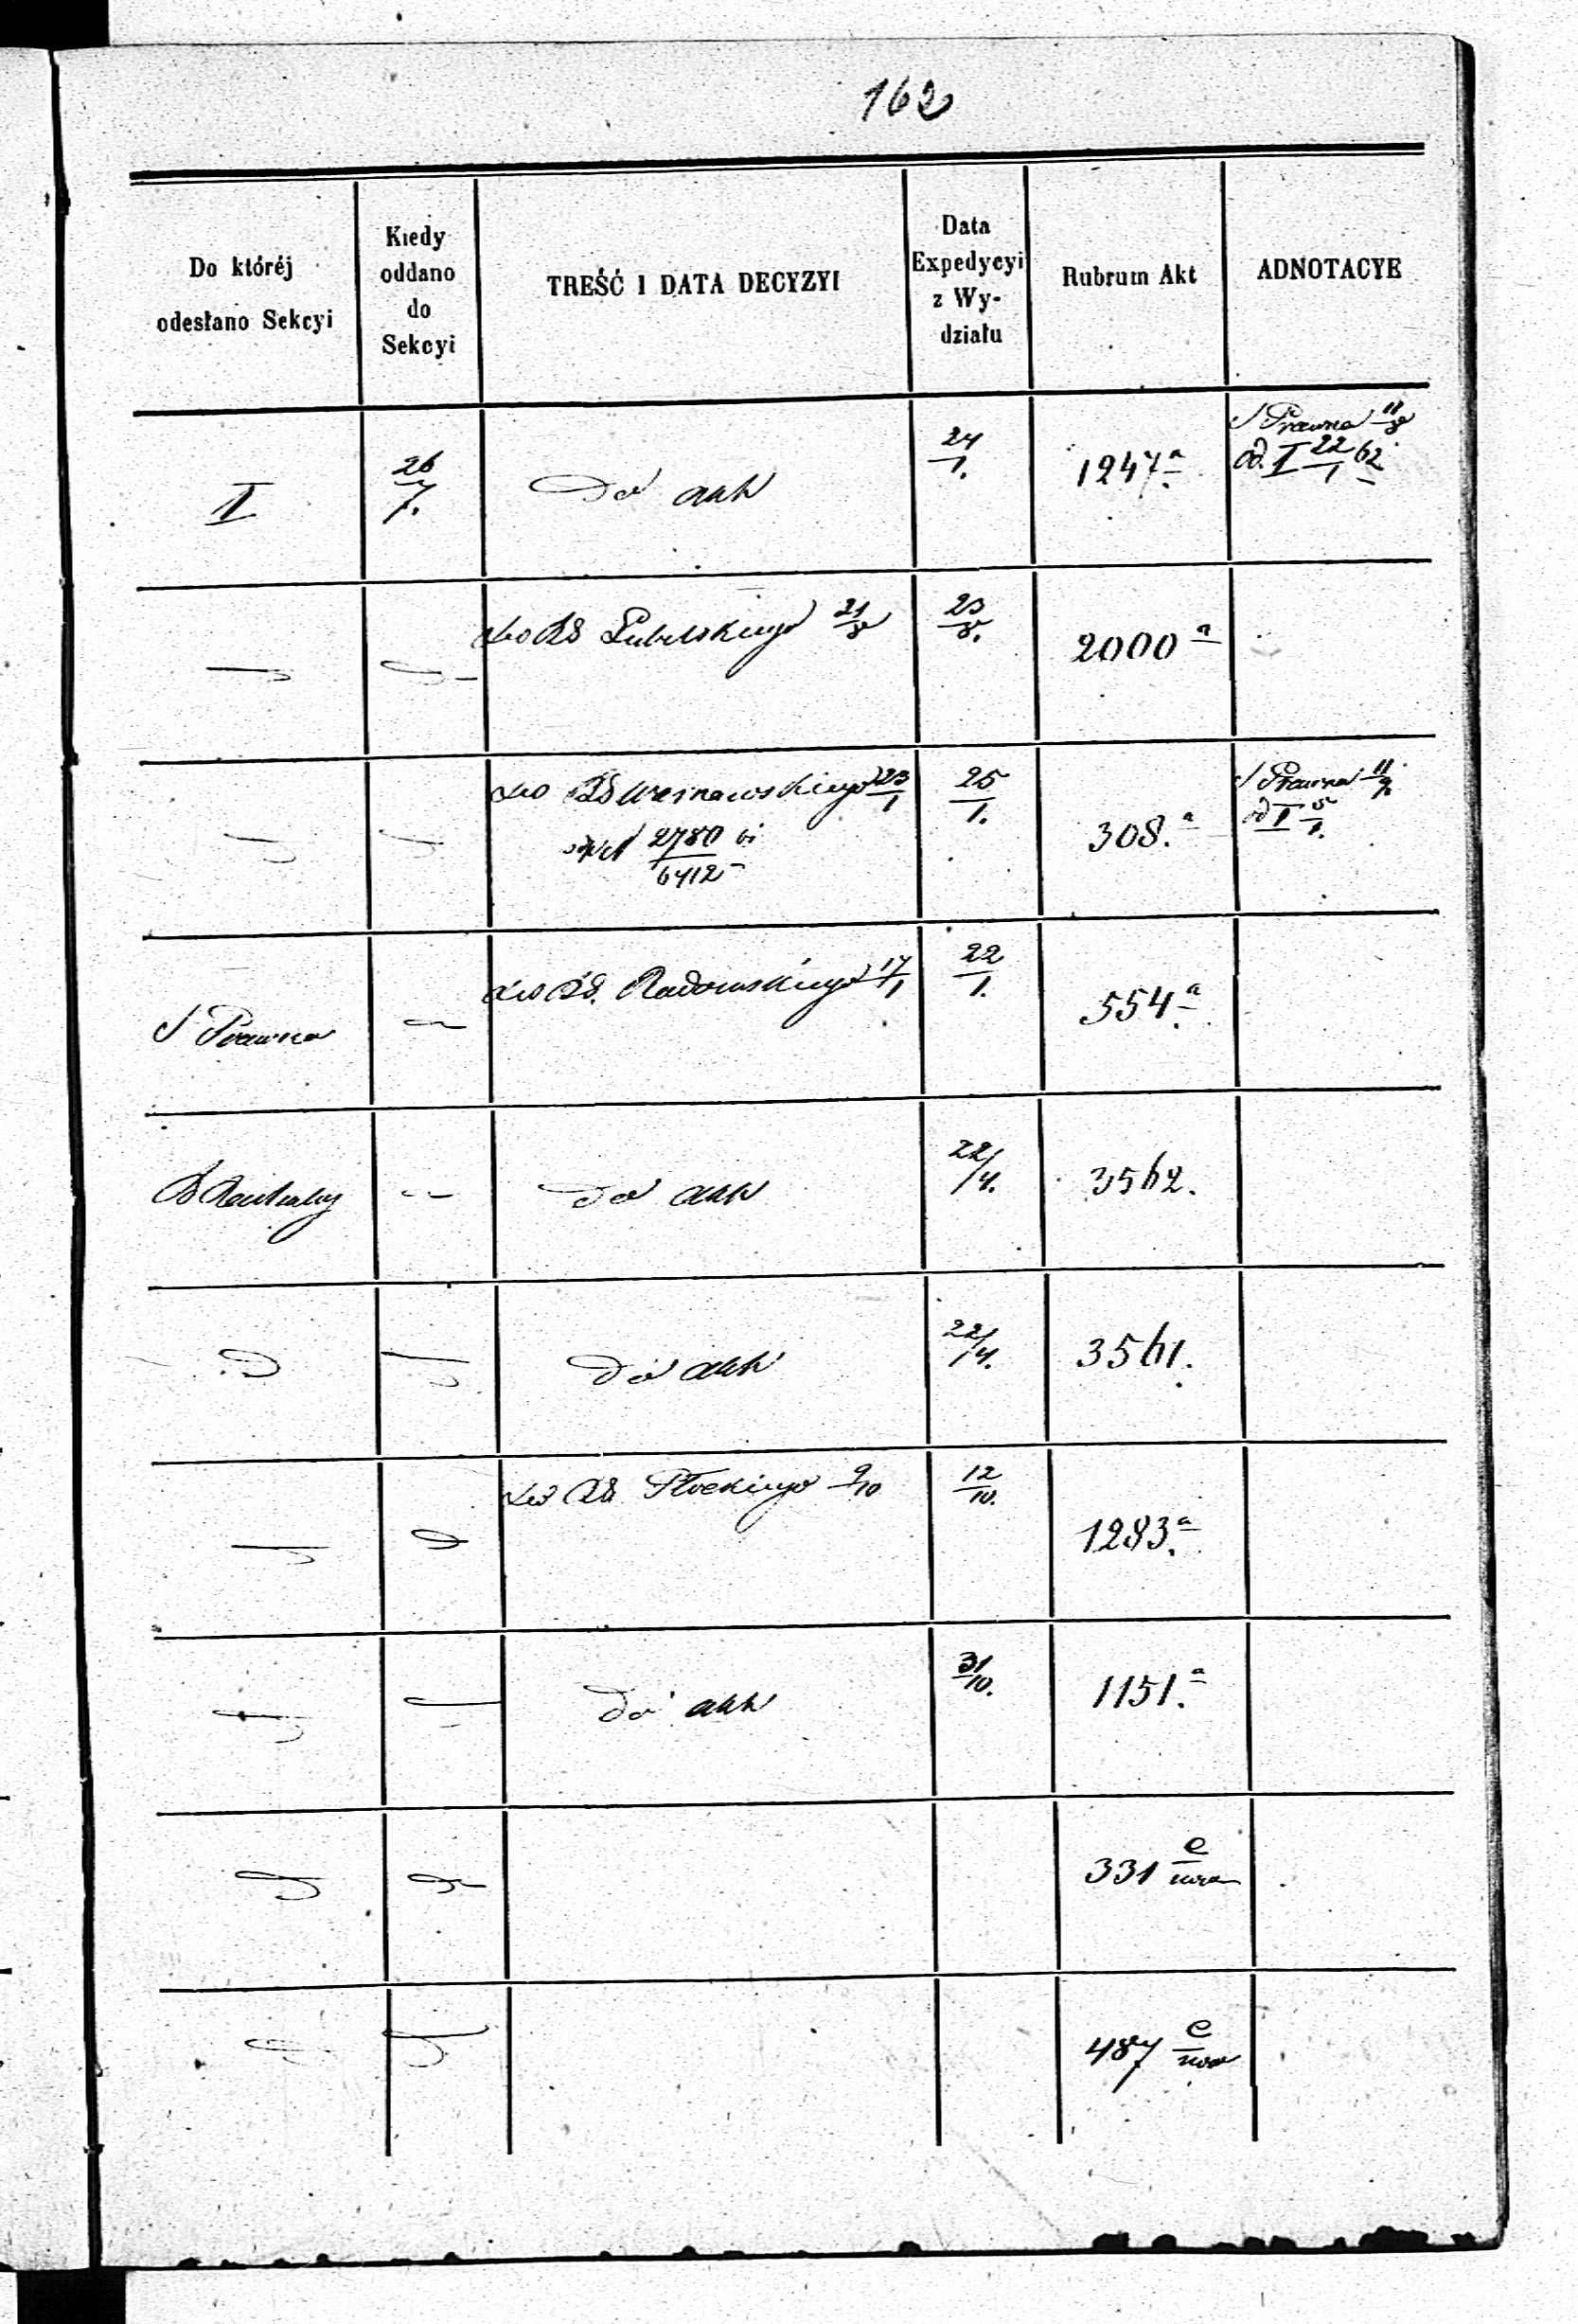 162
Do któréj odesłano Sekcyi
Kiedy oddano do Sekcyi
TREŚĆ I DATA DECYZYI
Data Expedycyi z Wy- działu
Rubrum Akt
ADNOTACYE
II 26/7. Do akt 24/1. 1247.a S Prawna 11/8
od. II 22/1 62
Do RG Lubelskiego 21/8 23/8. 2000 a
Do RG Warszawskiego 23/1 25/1. 308.a S Prawna 11/9
2780/6412 od II 5/1.
S Prawna Do RG. Radomskiego 17/1 22/1. 554.a
Do akt 22/4. 3562.
D Do akt 22/4. 3561.
Do RG Płockiego 9/10 12/10. 1283.a
Do akt 31/10. 1151.a
331 e
487 e